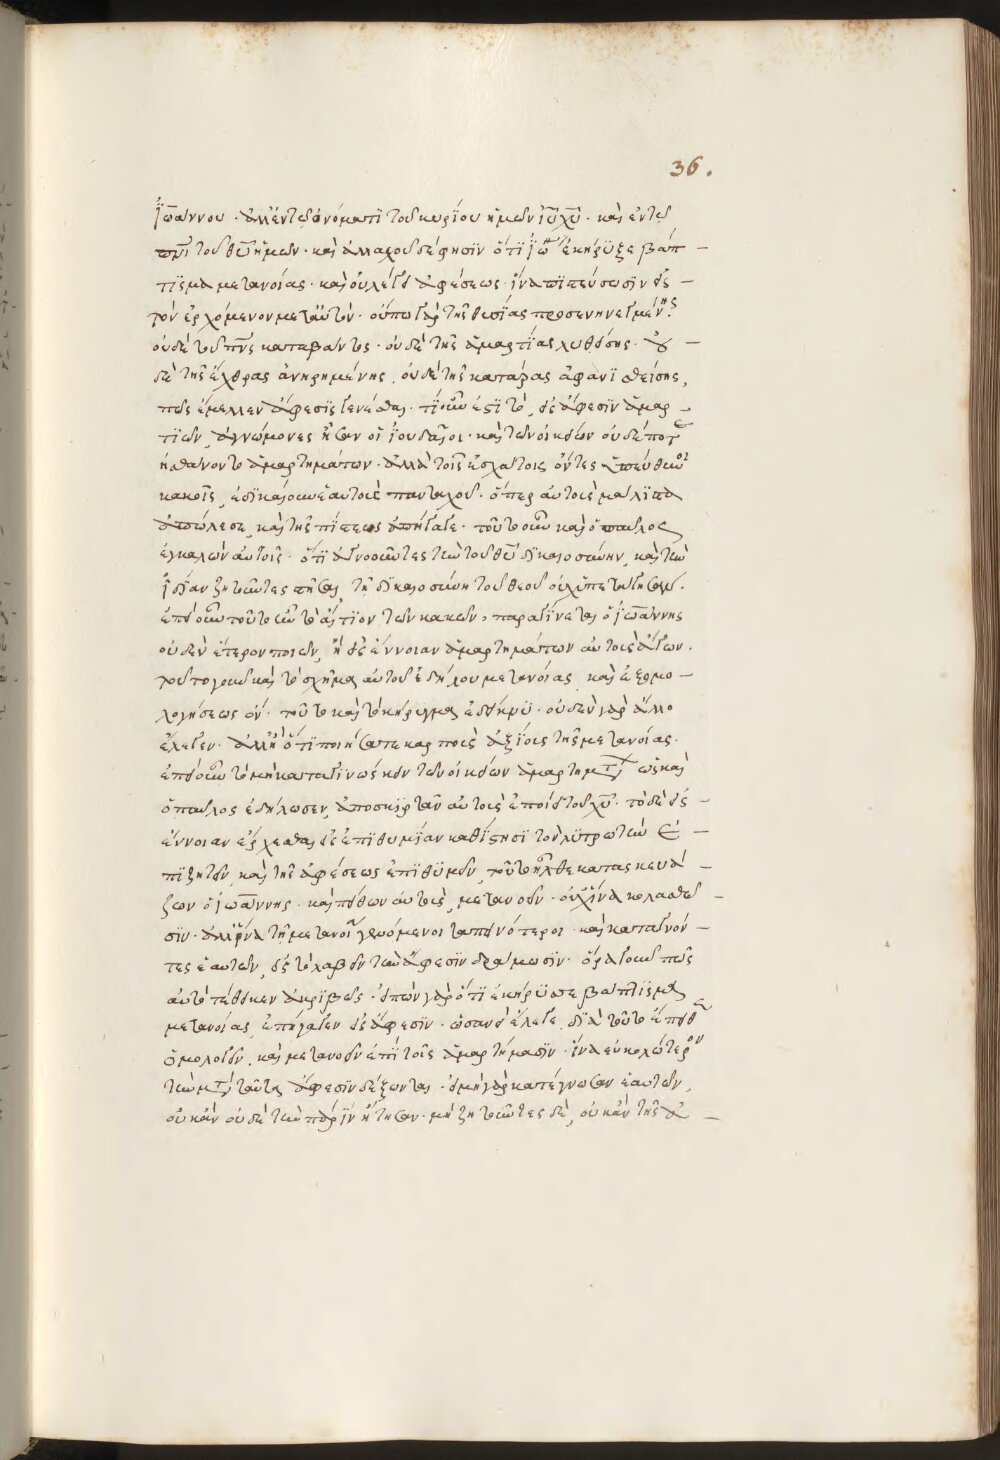 36.
Ἰωάννου · ἀλλ' ἐν τῷ ὀνόματι τοῦ κυρίου ἡμῶν ἰῦ χῦ · καὶ ἐν τῷ
πνι τοῦ θῦ ἡμῶν · καὶ ἀλλαχοῦ δέ φησιν ὅτι ἰω ἐκήρυξε βάπ –
τισμα μετανοίας · καὶ οὐ λέγει ἀφέσεως · ἵνα πιστεύσωσιν εἰς –
τὸν ἐρχόμενον μετ' αὐτόν · οὔπω γὰρ τῆς θυσίας προσενηνεγμένης
οὐδὲ τοῦ πνς καταβάντος · οὐδὲ τῆς ἁμαρτίας λυθείσης · οὐ –
δὲ τῆς ἔχθρας ἀνῃρημένης, οὐδὲ τῆς κατάρας ἀφανισθείσης,
πῶς ἔμελλεν ἄφεσις γενέσθαι · τί οὖν ἐστι τὸ, εἰς ἄφεσιν ἁμαρ –
τιῶν, ἀγνώμονες ἦσαν οἱ ἰουδαῖοι · καὶ τῶν οἰκείων οὐδέποτε
ᾐσθάνοντο ἁμαρτημάτων · ἀλλὰ τοῖς ἐσχάτοις ὄντες ὑπεύθυνοι
κακοῖς, ἐδικαίουν ἑαυτοὺς πανταχοῦ · ὅπερ αὐτοὺς μάλιστα
ἀπώλεσε, καὶ τῆς πίστεως ἀπήγαγε · τοῦτο οὖν καὶ ὁ παῦλος
ἐγκαλῶν αὐτοῖς · ὅτι ἀγνοοῦντες τὴν τοῦ θῦ δικαιοσύνην, καὶ τὴν
ἰδίαν ζητοῦντες στῆσαι, τῇ δικαιοσύνῃ τοῦ θεοῦ οὐχ ὑπετάγησαν.
ἐπεὶ οὖν τοῦτο ἦν τὸ αἴτιον τῶν κακῶν, παραγίνεται ὁ ἰωάννης
οὐδὲν ἕτερον ποιῶν, ἢ εἰς ἔννοιαν ἁμαρτημάτων αὐτοὺς ἄγων.
τοῦτο γοῦν καὶ τὸ σχῆμα αὐτοῦ ἐδήλου μετανοίας, καὶ ἐξομο –
λογήσεως ὄν · τοῦτο καὶ τὸ κήρυγμα ἐδείκνυ · οὐδὲν γὰρ ἄλλο
ἔλεγεν · ἀλλ' ἢ ὅτι ποιήσατε καρποὺς ἀξίους τῆς μετανοίας.
ἐπεὶ οὖν τὸ μὴ καταγινώσκειν τῶν οἰκείων ἁμαρτημτ ὡς καὶ
ὁ παῦλος ἐδήλωσεν, ἀποσκιρτᾶν αὐτοὺς ἐποίει τοῦ χῦ · τὸ δὲ εἰς –
ἔννοιαν ἔρχεσθαι εἰς ἐπιθυμίαν καθίστησι τοῦ λυτρωτὴν ἐ –
πιζητεῖν, καὶ τῆς ἀφέσεως ἐπιθυμεῖν, τοῦτο ἦλθε κατασκευά –
ζων ὁ ἰωάννης · καὶ πείθων αὐτοὺς μετανοεῖν · οὐχ ἵνα κολασθῶ –
σιν · ἀλλ' ἵνα τῇ μετανοίᾳ γενόμενοι ταπεινότεροι · καὶ καταγνόν –
τες ἑαυτῶν, εἰς τὸ λαβεῖν τὴν ἄφεσιν δράμωσιν · ὅρα γοῦν πῶς
αὐτὸ τέθεικεν ἀκριβῶς · εἰπὼν γὰρ ὅτι ἐκήρυσσε βάπτισμα
μετανοίας ἐπήγαγεν εἰς ἄφεσιν · ὡσανεὶ ἔλεγε, διὰ τοῦτο ἔπειθεν
ὁμολογεῖν, καὶ μετανοεῖν ἐπὶ τοῖς ἁμαρτήμασιν · ἵνα εὐκολώτερον
τὴν μτ ταῦτα ἄφεσιν δέξωνται · εἰ μὴ γὰρ κατέγνωσαν ἑαυτῶν,
οὐκ ἂν οὐδὲ τὴν χάριν ᾔτησαν · μὴ ζητοῦντες δὲ, οὐκ ἂν τῆς ἀ –